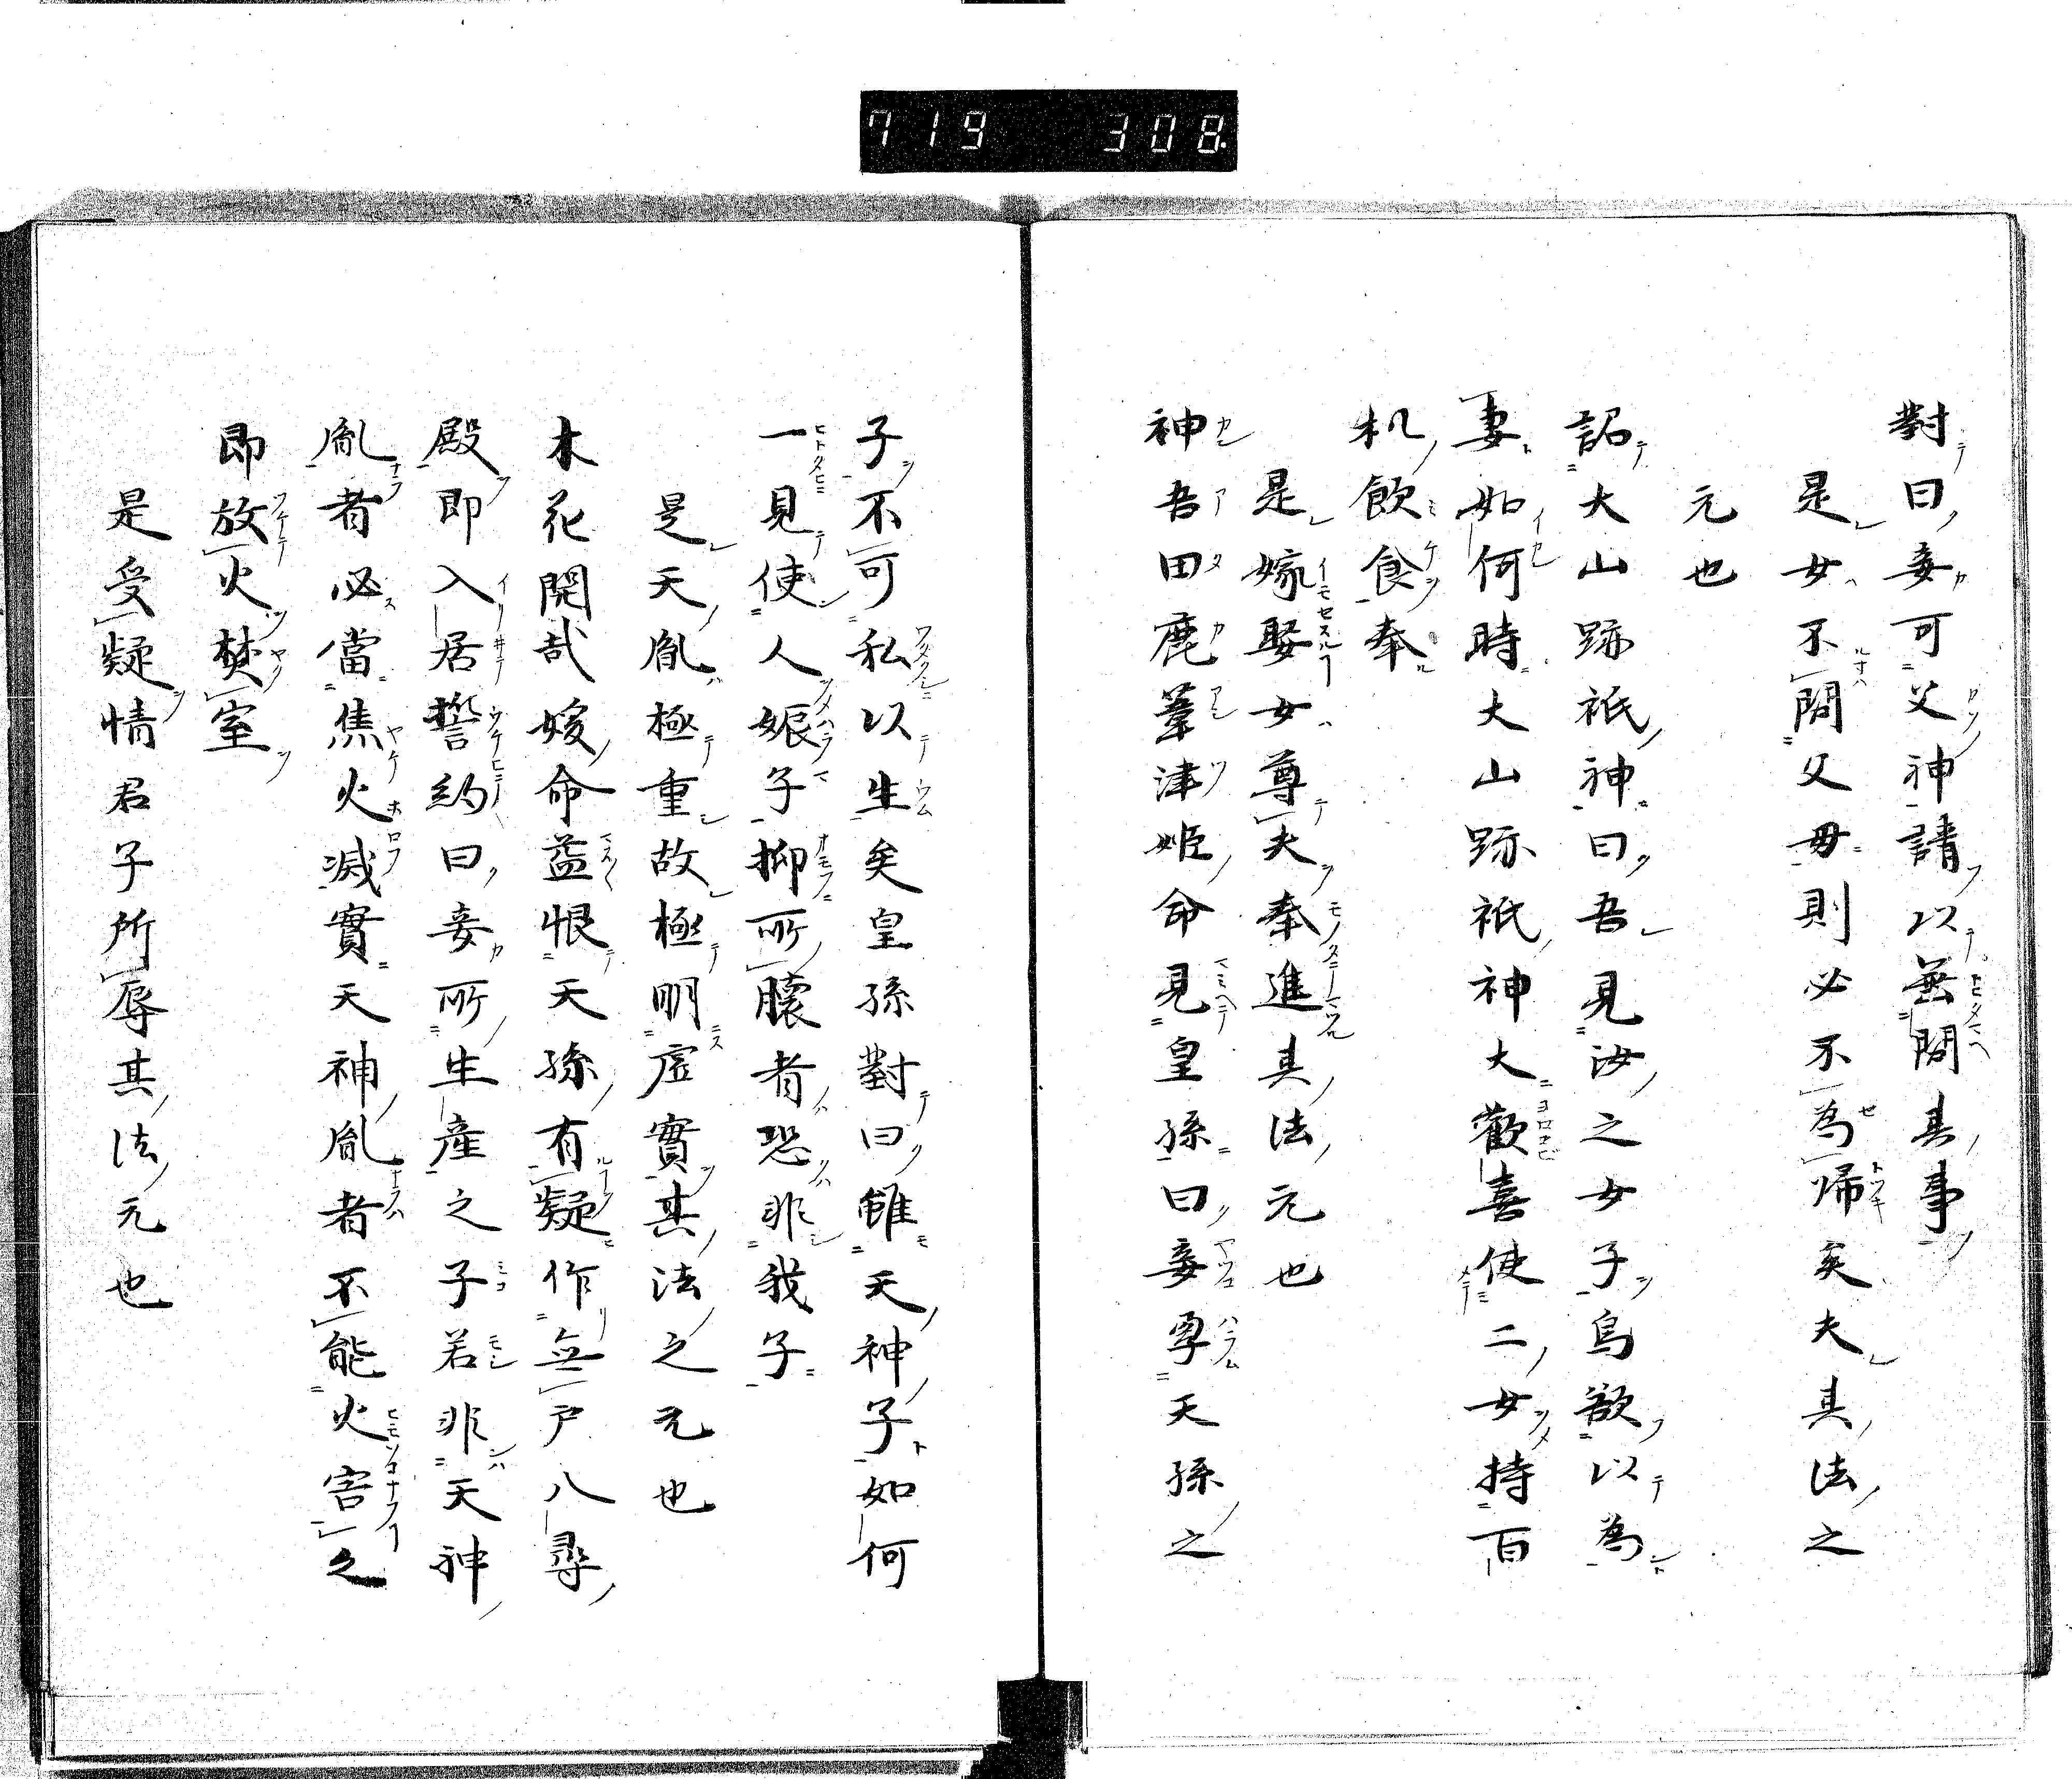 719 308
對曰妾可父神請以無問其事
是女不問父毋則必不為帰矣夫其法之
元也
詔大山跡祇神曰吾見汝之女子鳥欲以為
妻如何時大山跡祇神大歡喜使二女持百
机飲食奉
是嫁娶女尊夫奉進其法元也
神吾田鹿葦津姫命見皇孫曰妾孕天孫之
子不可私以生矣皇孫對曰雖天神子如何
一見使人娠子抑所懐者恐非我子
是天胤極重故極明虚實其法之元也
木花開哉姫命益恨天孫有疑作無戸八尋
殿即入居誓約曰妾所生産之子若非天神
胤者必當焦火滅實天神胤者不能火害之
即放火焚室
是受疑情君子所辱其法元也